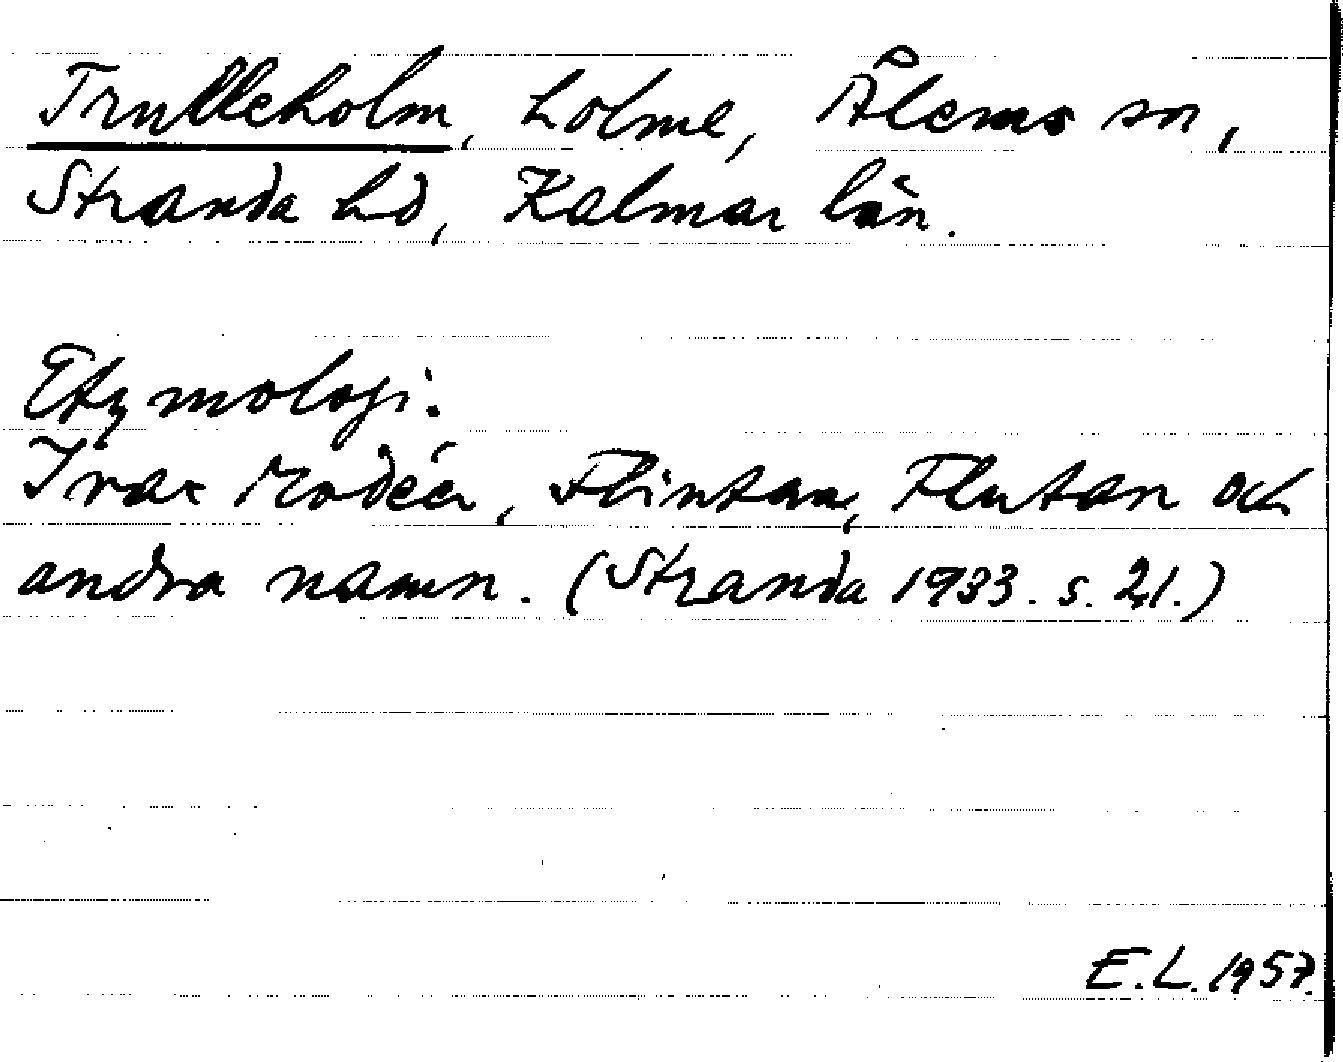 Trulleholm, holme, Ålems sn,
Stranda hd, Kalmar län.
Etymologi:
Ivar Modéer, Flintan, Flutan och
andra namn. (Stranda 1933. s. 21.)
E.L. 1957.